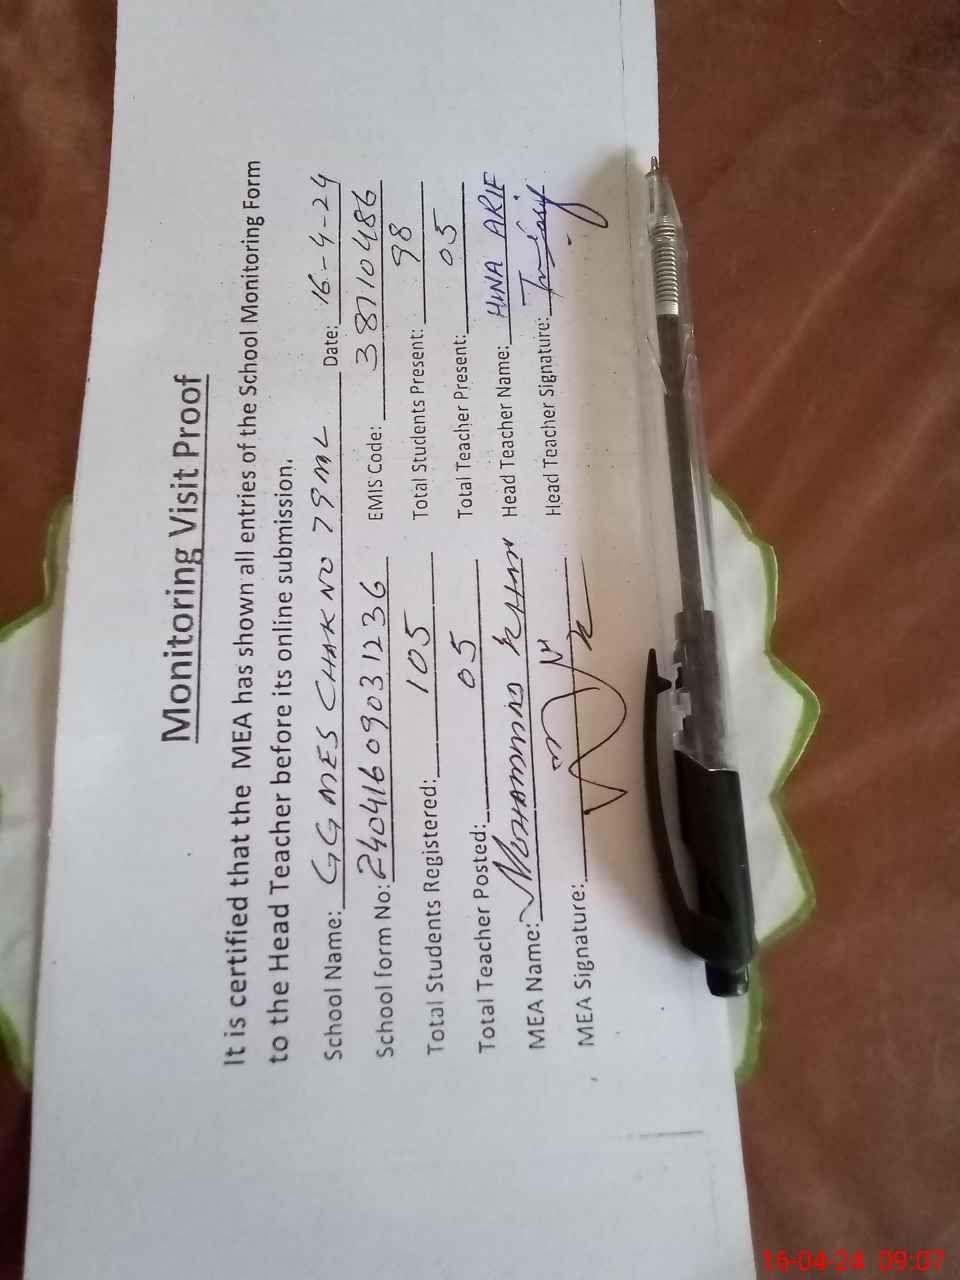 Monitoring Visit Proof
It is certified that the MEA has shown all entries of the School Monitoring Form
to the Head Teacher before its online submission.
School Name: GG MES CHAK NO 79 ML Date: 16-4-24
School form No: 24041609031236 EMIS Code: 38710486
Total Students Registered: 105 Total Students Present: 98
Total Teacher Posted: 05 Total Teacher Present: 05
MEA Name: MUHAMMAD Head Teacher Name: HINA ARIF
MEA Signature: Head Teacher Signature:
16-04-24 09:07